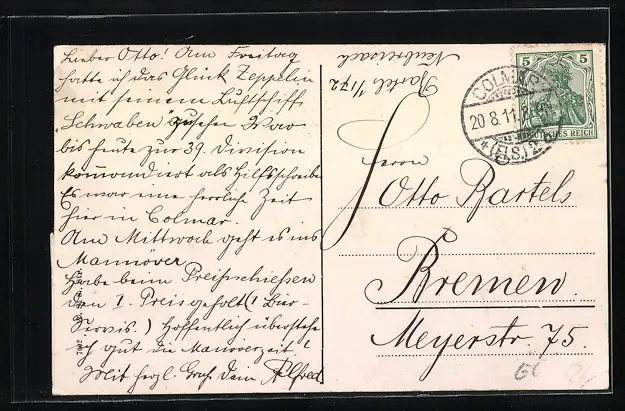 Lieber Otto! Am Freitag
hatte ich das Glück Zeppelin
mit seinem Luftschiff
„Schwaben" zu sehen War
bis heute zur 39. Division
kommandiert als Hilfsschreiber
Es war eine herrliche Zeit
hier in Colmar.
Am Mittwoch geht es ins
Mannöver
Habe beim Preißschießen
den I. Preis geholt (1 Bür-
Servis.) Hoffentlich überstehe
ich gut die Manöverzeit!
Mit herzl. Gruß Dein Alfred
Bartels 1/172
Neubreisach
5 5
DEUTSCHES REICH
COLMAR
20.8.11.
(ELS.)
Herrn
Otto Bartels
Bremen.
Meyerstr. 75.